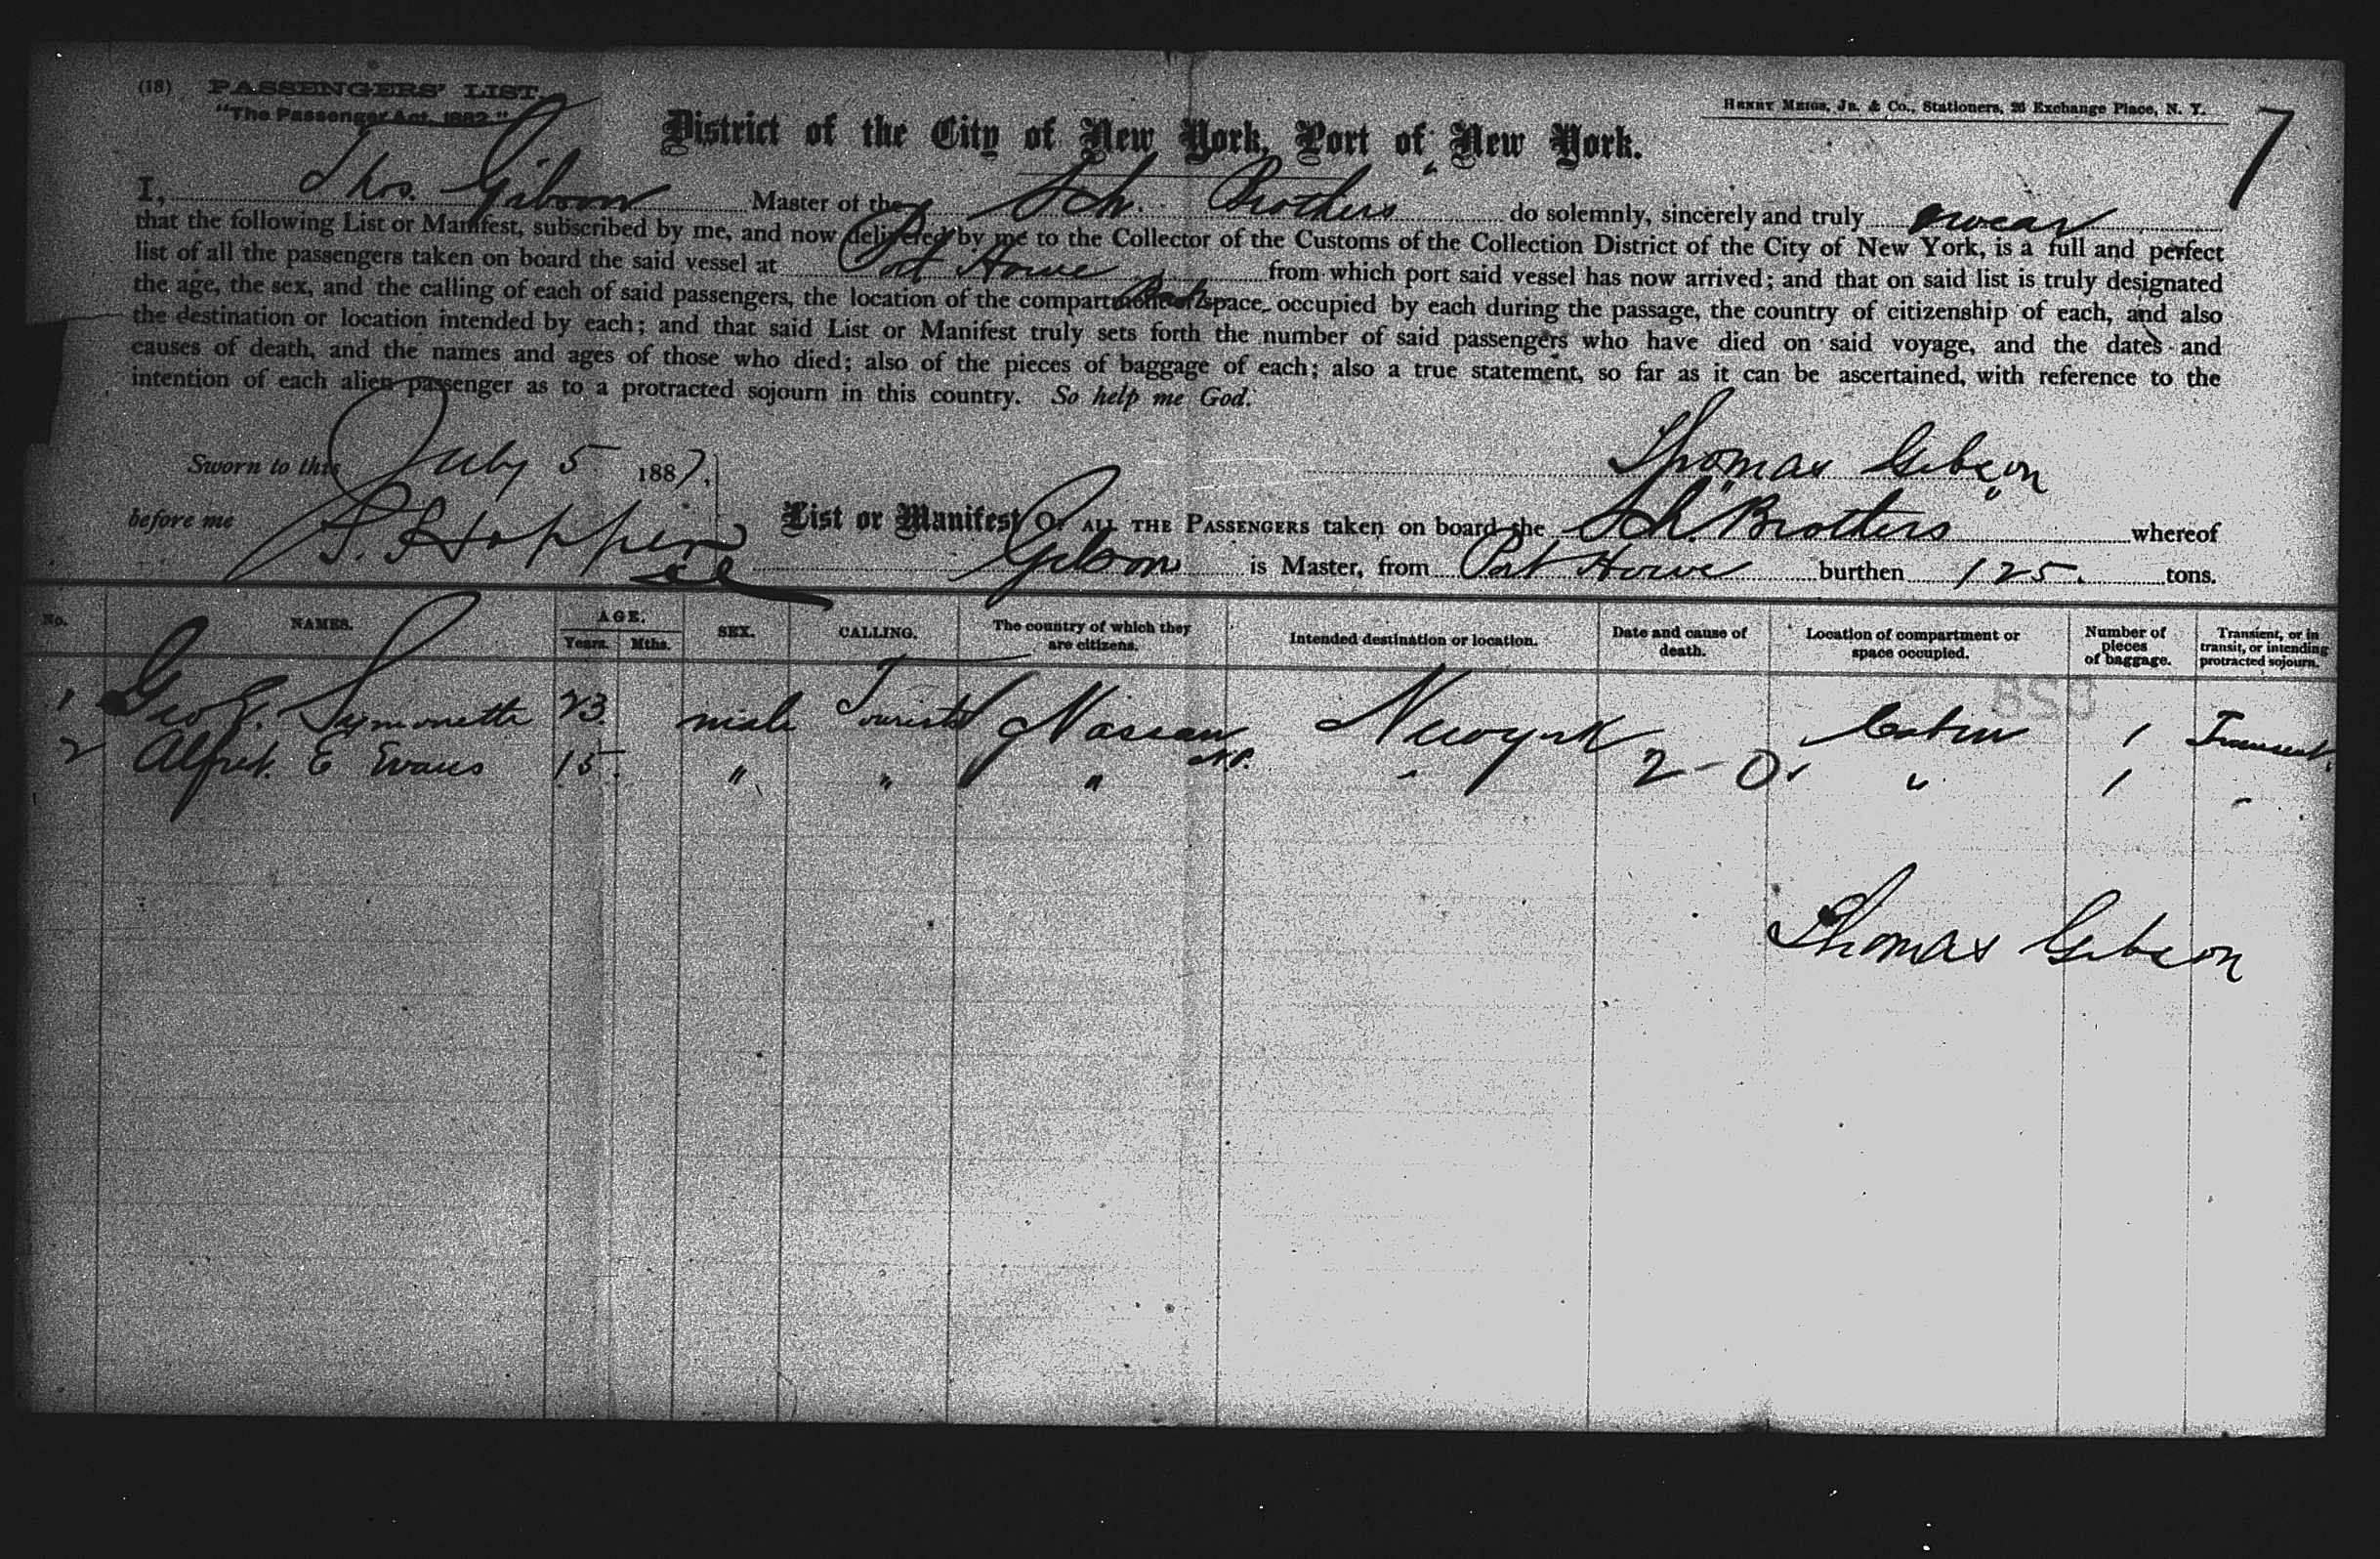 (18) PASSENGERS' LIST.
"The Passenger Act, 1882."
HENRY MEIGS, JR. & CO., Stationers, 26 Exchange Place, N. Y.
7
District of the City of New York, Port of New York.
I, Thos. Gibson Master of the Sch. Brothers do solemnly, sincerely and truly swear
that the following List or Manifest, subscribed by me, and now delivered by me to the Collector of the Customs of the Collection District of the City of New York, is a full and perfect
list of all the passengers taken on board the said vessel at Port Howe from which port said vessel has now arrived; and that on said list is truly designated
the age, the sex, and the calling of each of said passengers, the location of the compartment or space occupied by each during the passage, the country of citizenship of each, and also
the destination or location intended by each; and that said List or Manifest truly sets forth the number of said passengers who have died on said voyage, and the dates and
causes of death, and the names and ages of those who died; also of the pieces of baggage of each; also a true statement, so far as it can be ascertained, with reference to the
intention of each alien passenger as to a protracted sojourn in this country. So help me God.
Sworn to this July 5 1887. Thomas Gibson
before me
List or Manifest OF ALL THE PASSENGERS taken on board the Sch. Brothers whereof
Gibson is Master, from Port Howe burthen 125. tons.
No. NAMES. AGE. Years. Mths. SEX. CALLING. The country of which they are citizens. Intended destination or location. Date and cause of death. Location of compartment or space occupied. Number of pieces of baggage. Transient, or in transit, or intending protracted sojourn.
1 Geo. Symonette 23. male Tourist Nassau N.P. New york Cabin 1 Transient.
2 Alfred. E Evans 15. " " " " 2-0 " 1 "
Thomas Gibson